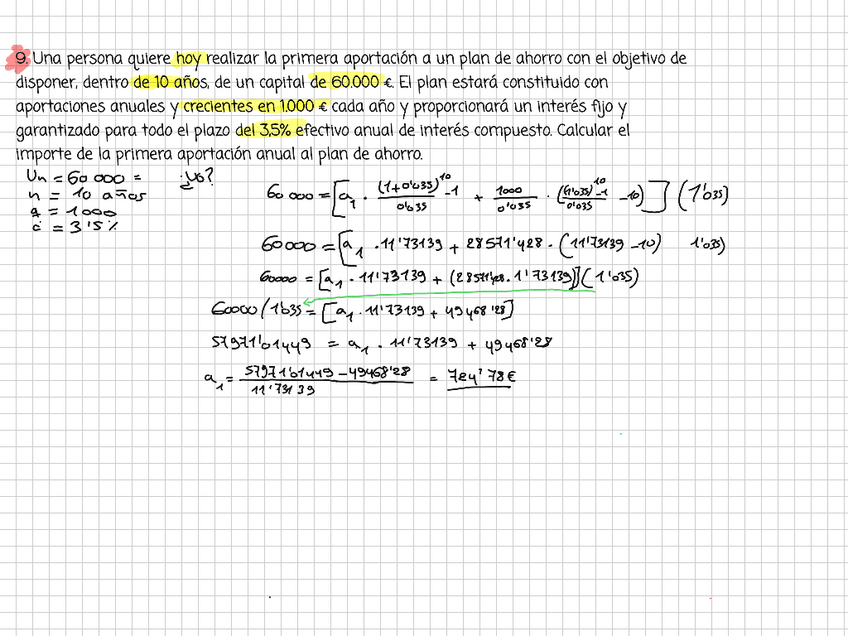 9. Una persona quiere hoy realizar la primera aportación a un plan de ahorro con el objetivo de
disponer, dentro de 10 años, de un capital de 60.000 €. El plan estará constituido con
aportaciones anuales y crecientes en 1.000 € cada año y proporcionará un interés fijo y
garantizado para todo el plazo del 3,5% efectivo anual de interés compuesto. Calcular el
importe de la primera aportación anual al plan de ahorro.
Un = 60 000 =
n = 10 años
q = 1000
i = 3'5%
¿Vo?
60 000 = [a₁ · ((1+0'035)^10 -1)/0'035 + 1000/0'035 · ((1'035)^10 -1)/0'035 -10)] (1'035)
60000 = [a₁ · 11'73139 + 28571'428 · (11'73139 -10) 1'035)
60000 = [a₁ · 11'73139 + (28571'428 · 1'73139)] (1'035)
60000/1'035 = [a₁ · 11'73139 + 49468'28]
57971'01449 = a₁ · 11'73139 + 49468'28
a₁ = (57971'01449 - 49468'28)/11'73139 = 724'78€